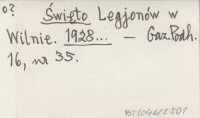 o?
Święto Legjonów w
Wilnie. 1928... — Gaz. Podh.
16, nr 35.